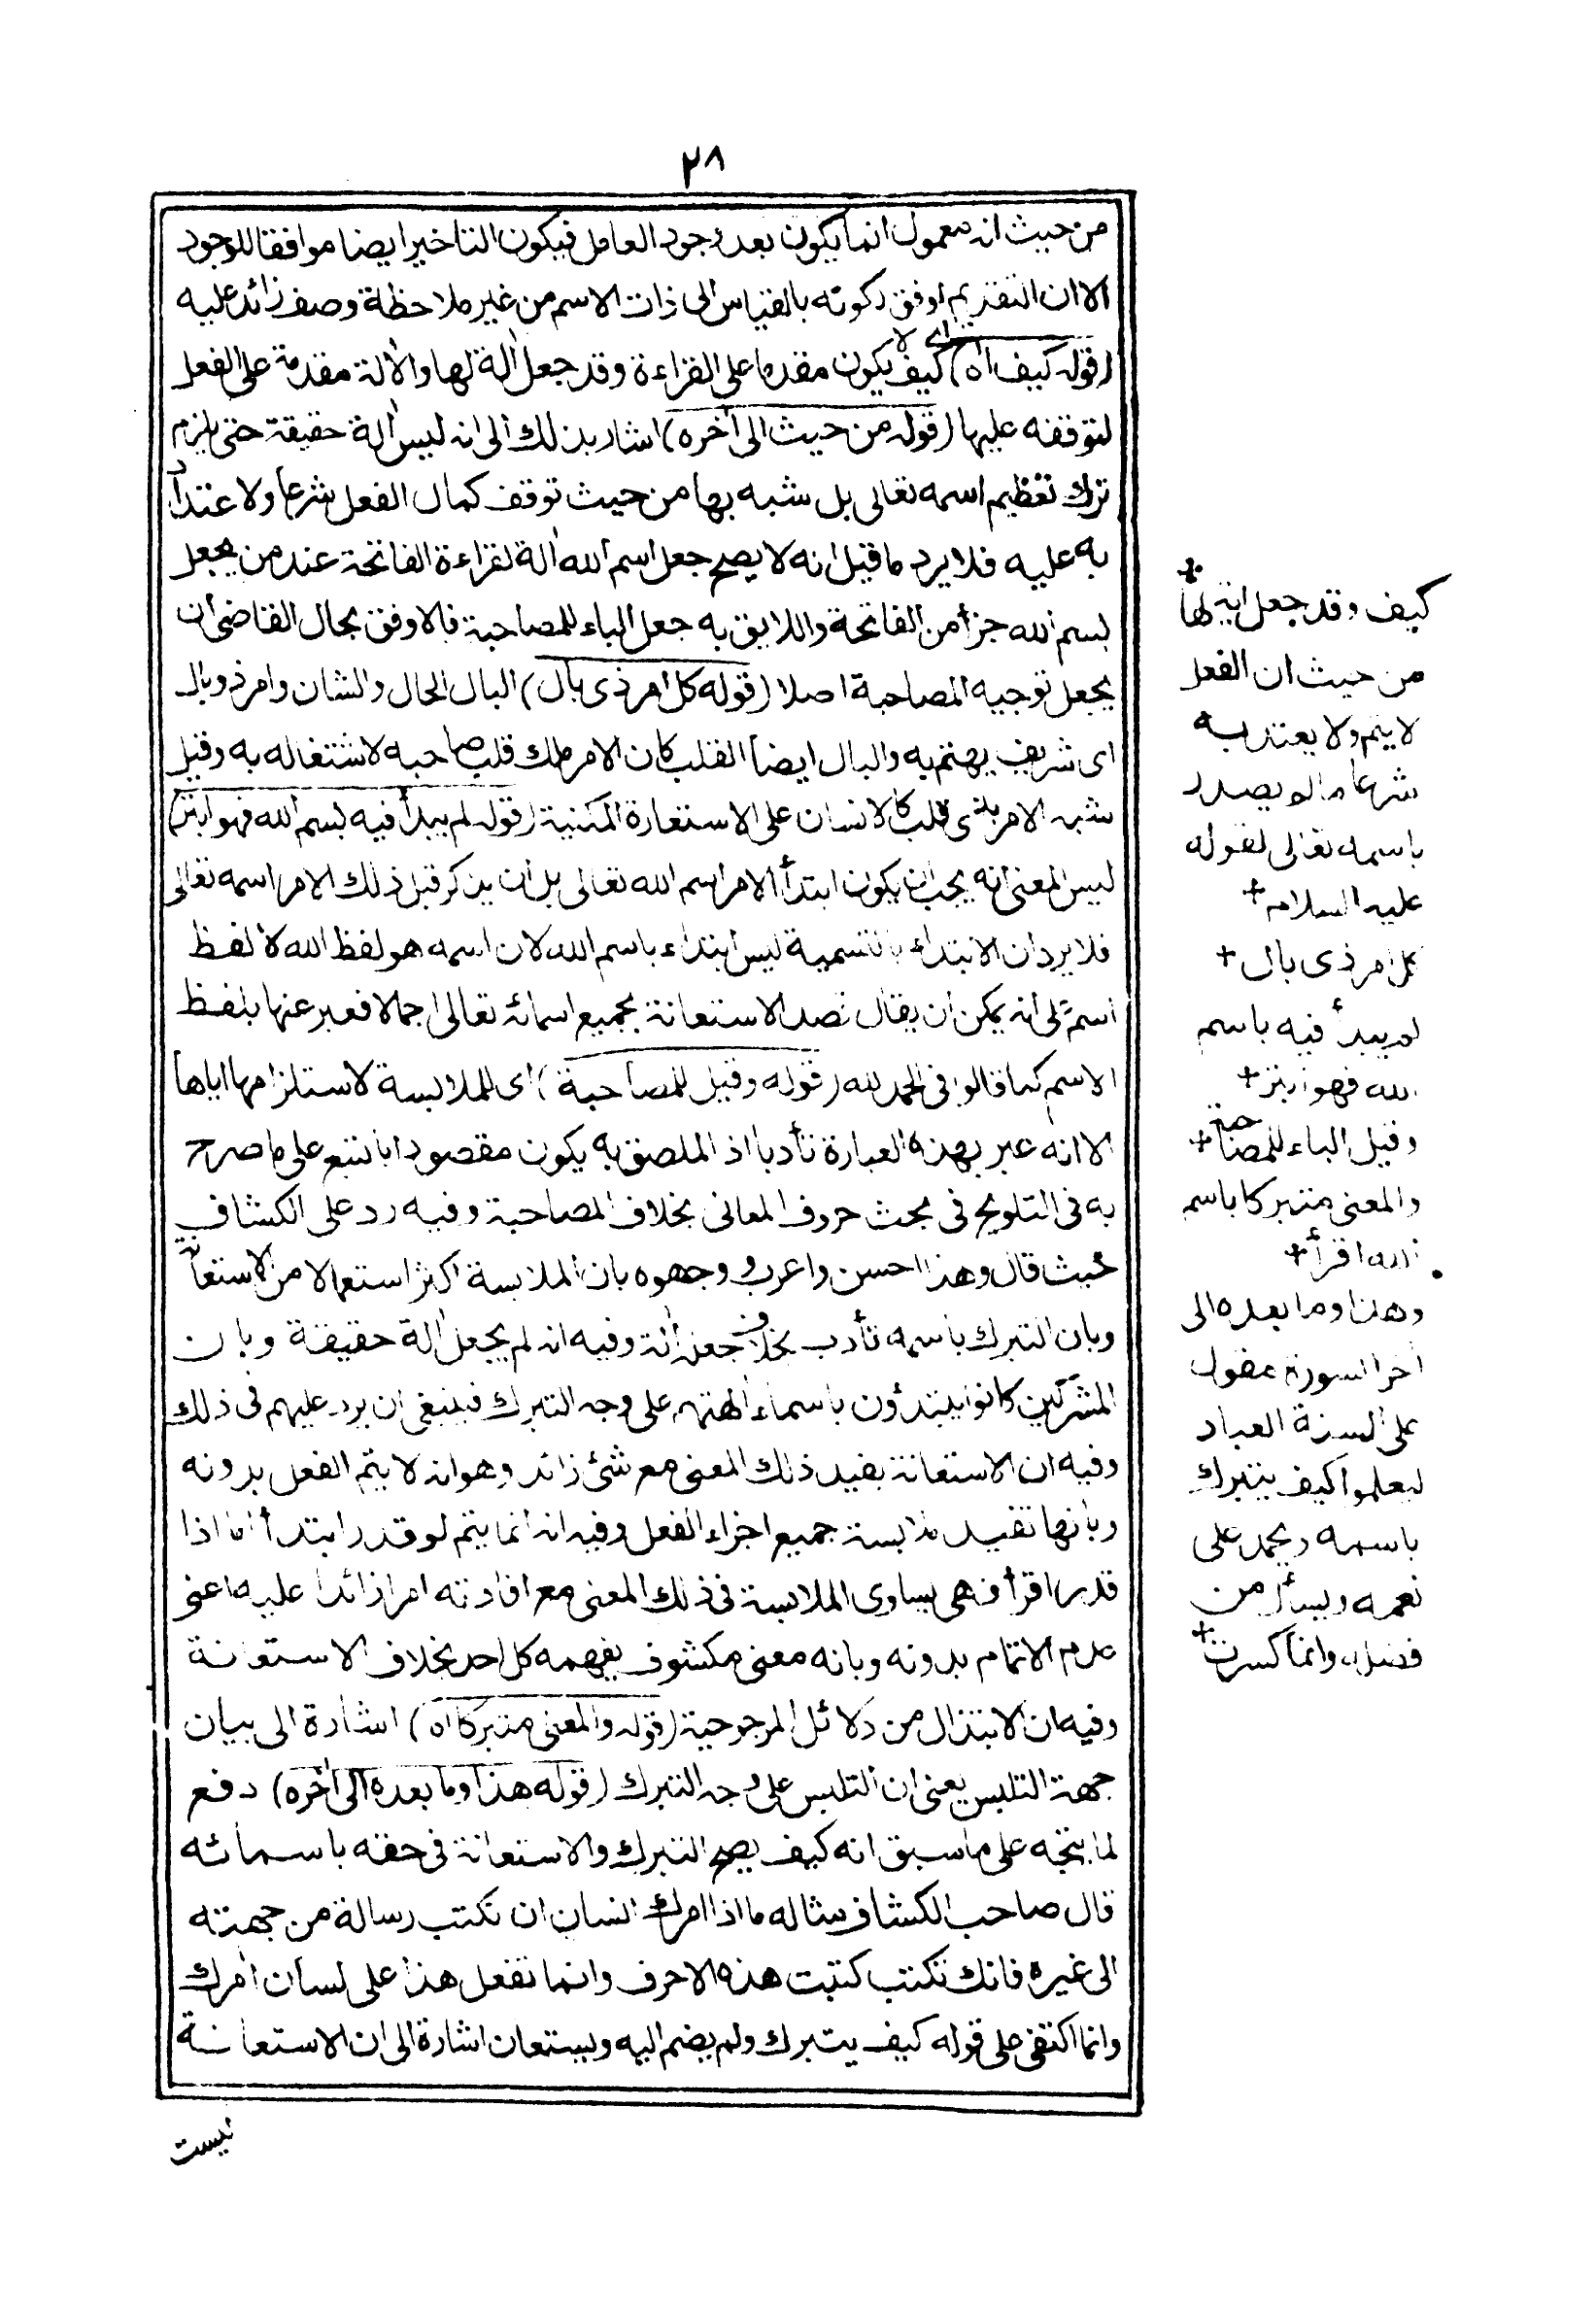 ٢٨
من حيث انه معمول انما يكون بعد وجود العامل فيكون التاخير ايضا موافقا للوجود
الا ان التقديم اوفق لكونه بالقياس الى ذات الاسم من غير ملاحظة وصف زائد عليه
(قوله كيف اه) اى كيف لا يكون مقدما على القراءة وقد جعل آلة لها والآلة مقدمة على الفعل
لتوقفه عليها (قوله من حيث الى آخره) اشار بذلك الى انه ليس آلة حقيقة حتى يلزم
ترك تعظيم اسمه تعالى بل شبه بها من حيث توقف كمال الفعل شرعا والاعتداد
به عليه فلا يرد ما قيل انه لا يصح جعل اسم الله آلة لقراءة الفاتحة عند من يجعل
بسم الله جزأ من الفاتحة واللايق به جعل الباء للمصاحبة فالاوفق بحال القاضى ان
يجعل توجيه المصاحبة اصلا (قوله كل امر ذى بال) البال الحال والشان وامر ذو بال
اى شريف يهتم به والبال ايضا القلب كان الامر ملك قلب صاحبه لاشتغاله به وقيل
شبه الامر بذى قلب كالانسان على الاستعارة المكنية (قوله لم يبدأ فيه بسم الله فهو ابتر)
ليس المعنى انه يجب ان يكون ابتدأ الامر اسم الله تعالى بل ان يذكر قبل ذلك الامر اسمه تعالى
فلا يرد ان الابتداء بالتسمية ليس ابتداء باسم الله لان اسمه هو لفظ الله لا لفظ
اسم على انه يمكن ان يقال قصد الاستعانة بجميع اسمائه تعالى اجمالا فعبر عنها بلفظ
الاسم كما قالوا فى الحمد لله (قوله وقيل للمصاحبة) اى للملابسة لاستلزامها اياها
الا انه عبر بهذه العبارة تأدبا اذ الملصق به يكون مقصودا بالتبع على ما صرح
به فى التلويح فى بحث حروف المعانى بخلاف المصاحبة وفيه رد على الكشاف
حيث قال وهذا احسن واعرب ووجهوه بان الملابسة اكثر استعمالا من الاستعانة
وبان التبرك باسمه تأدب بخلاف جعله آلة وفيه انه لم يجعل آلة حقيقة وبان
المشركين كانوا يبتدؤن باسماء آلهتهم على وجه التبرك فينبغى ان يرد عليهم فى ذلك
وفيه ان الاستعانة يفيد ذلك المعنى مع شئ زائد وهو انه لا يتم الفعل بدونه
وبأنها تفيد ملابسة جميع اجزاء الفعل وفيه انه انما يتم لو قدر ابتدأ اما اذا
قدر اقرأ فهى يساوى الملابسة فى ذلك المعنى مع افادته امرا زائدا عليه اعنى
عدم الاتمام بدونه وبانه معنى مكشوف يفهمه كل احد بخلاف الاستعانة
وفيه ان الابتذال من دلائل المرجوحية (قوله والمعنى متبركا اه) اشارة الى بيان
جهة التلبس يعنى ان التلبس على وجه التبرك (قوله هذا وما بعده الى آخره) دفع
لما يتجه على ما سبق انه كيف يصح التبرك والاستعانة فى حقه باسمائه
قال صاحب الكشاف مثاله ما اذا امرك انسان ان تكتب رسالة من جهته
الى غيره فانك تكتب كتبت هذه الاحرف وانما تفعل هذا على لسان آمرك
وانما اكتفى على قوله كيف يتبرك ولم يضم اليه ويستعان اشارة الى ان الاستعانة
ليست
كيف وقد جعل آلة لها +
من حيث ان الفعل
لا يتم ولا يعتد به
شرعا ما لم يصدر
باسمه تعالى لقوله
عليه السلام +
كل امر ذى بال +
لم يبدأ فيه باسم
الله فهو ابتر +
وقيل الباء للمصاحبة +
والمعنى متبركا باسم
الله اقرأ +
وهذا وما بعده الى
آخر السورة مقول
على السنة العباد
ليعلموا كيف يتبرك
باسمه ويحمد على
نعمه ويسأل من
فضله وانما كسرت +